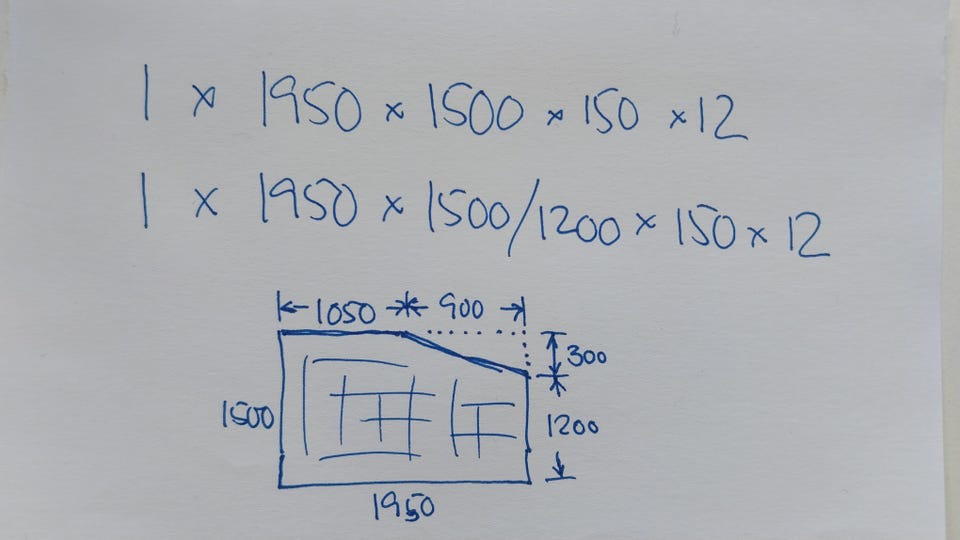 1 × 1950 × 1500 × 150 × 12
1 × 1950 × 1500/1200 × 150 × 12
1050 900
300
1500
1200
1950